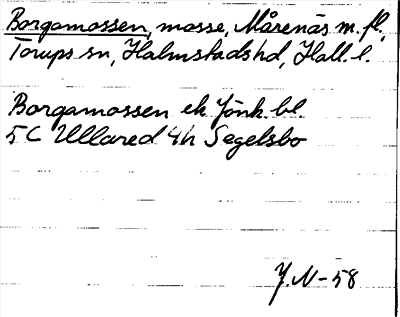 Borgamossen, mosse, Mårenäs m. fl.,
Torups sn, Halmstads hd, Hall. l.
Borgamossen ek Jönk. bl.
5 C Ullared 4h Segelsbo
J. N-58